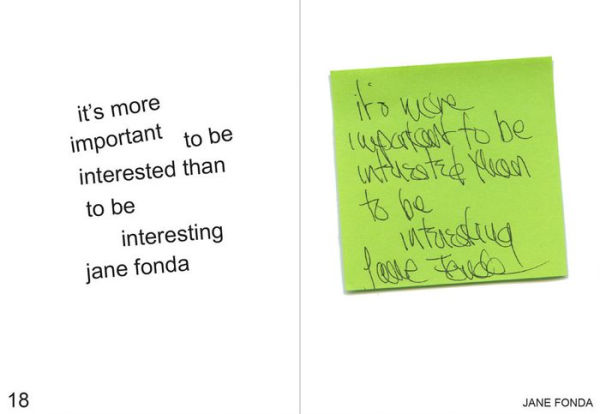 it's more
important to be
interested than
to be
interesting
jane fonda
18
it's more
important to be
interested than
to be
interesting
Jane Fonda
JANE FONDA